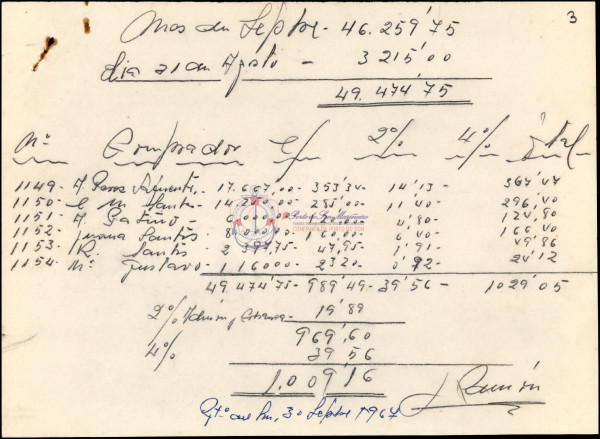 3
Mes de Sepbre - 46.259'75
dia 31 de Agosto - 3215'00
49.474'75
Nº Comprador 2% 4% Total
1149 - A. 17.667,00 - 353'34 - 14'13 - 367'47
1150 - - 14.250'00 - 285'00 - 11'40 - 296'40
1151 - A. Patiño - 120'00 - 4'80 - 124'80
1152 - Juana Santos - 160'00 - 6'40 - 166'40
1153 - R. Santos - 2.397'75 - 47'95 - 1'91 - 49'86
1154 - Mª Gustavo - 1.160'00 - 23'20 - 0'92 - 24'12
49.474'75 - 989'49 - 39'56 - 1029'05
2% Admón y Cobranza - 19'89
969,60
4% 39'56
1.009'16
30 Sepbre 1967
J Ramón